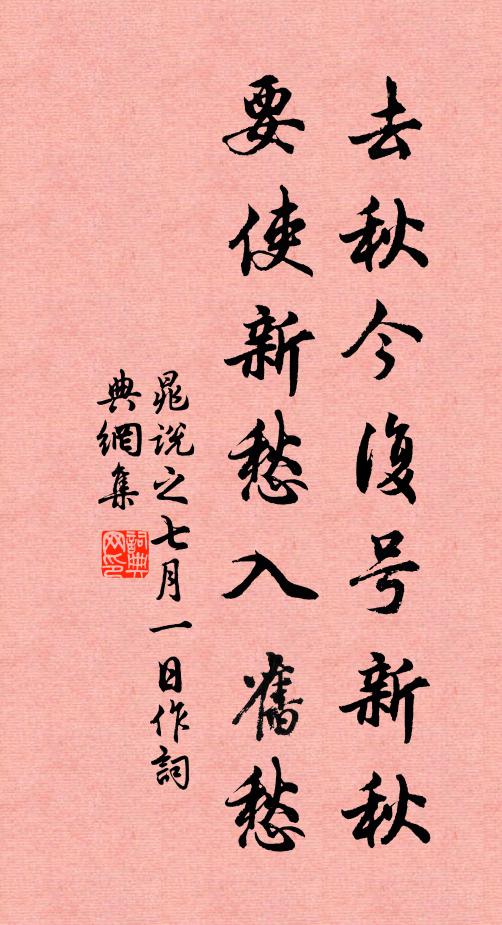 去秋今復号新秋
要使新愁入舊愁
晁說之七月一日作詞
典網集
詞典
网印